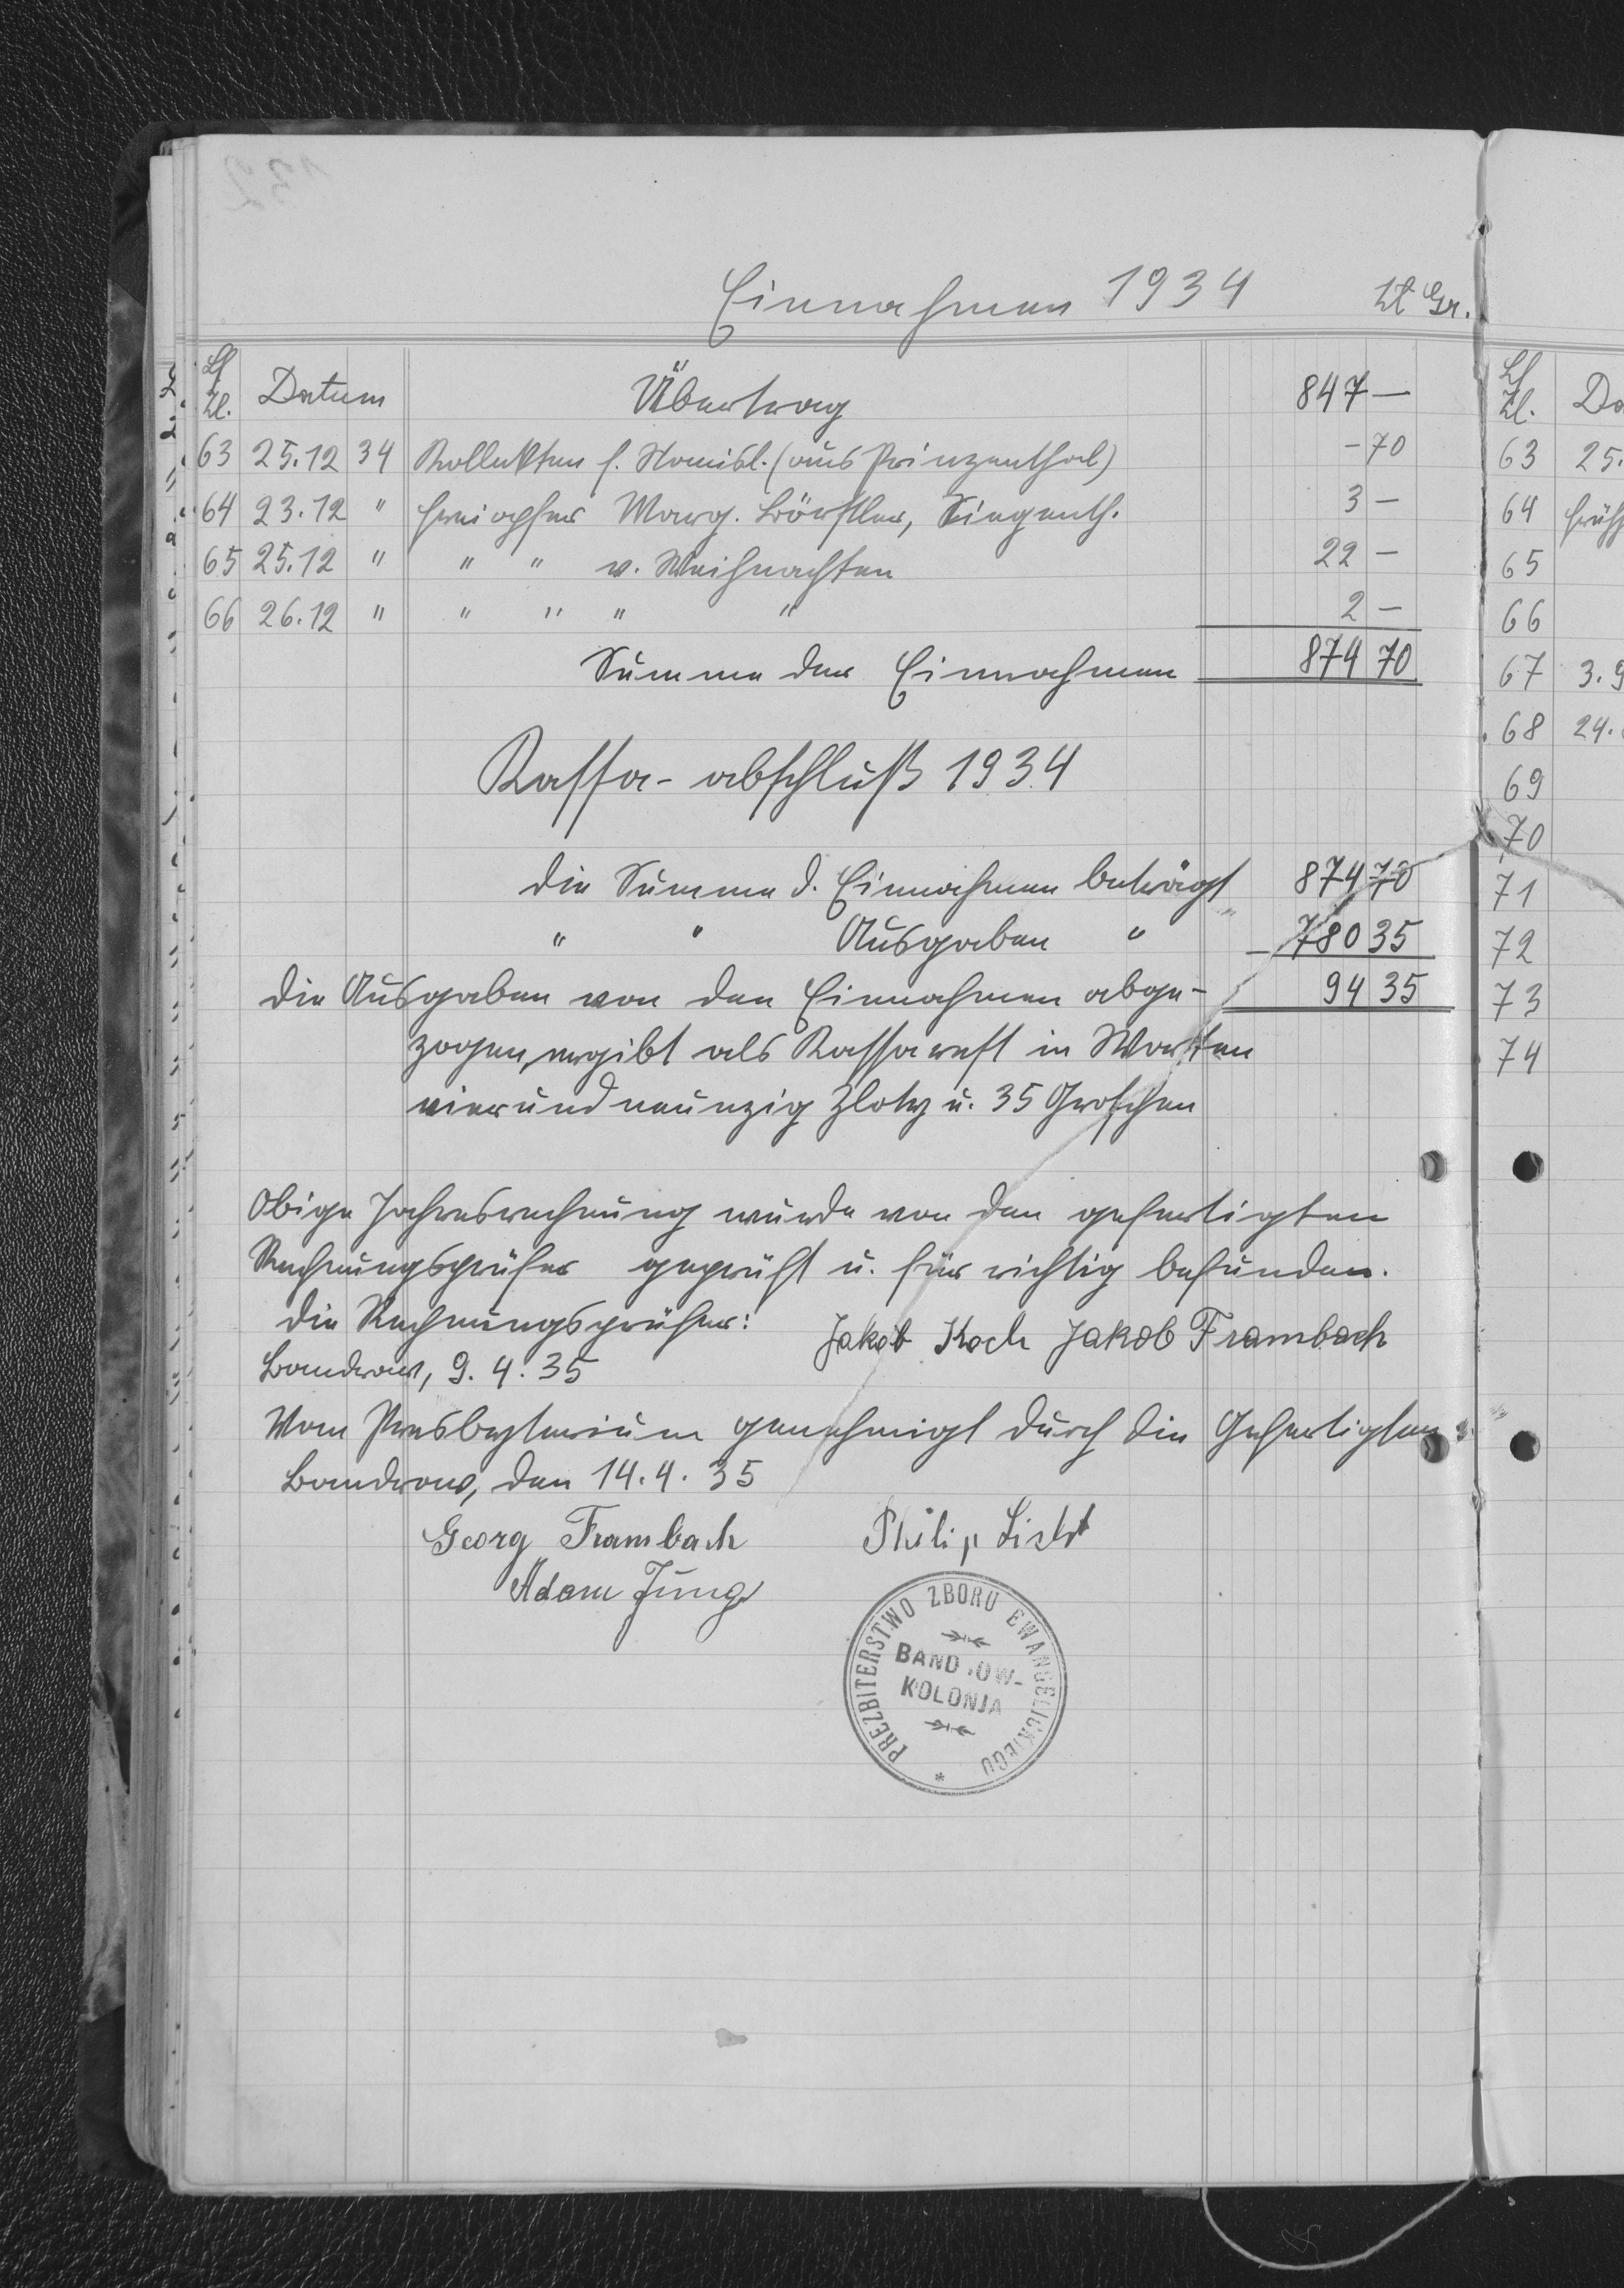 Einnahmen 1934 Zł Gr.
Lf Zl. Datum Übertrag 847 —
63 25.12 34 Kollekten f. (aus Prinzenthal) - 70
64 23.12 " Freiopfer Marg. Börstler, Siegenth. 3 —
65 25.12 " " " v. Weihnachten 22 —
66 26.12 " " " " " 2 —
Summe der Einnahmen 874 70
Kassa-abschluß 1934
die Summe d. Einnahmen beträgt 874 70
" " Ausgaben " - 780 35
die Ausgaben von den Einnahmen abge- 94 35
zogen, ergibt als Kassarest in Worten
vierundneunzig Zloty u. 35 Groschen
Obige Jahresrechnung wurde von den gefertigten
Rechnungsprüfer geprüft u. für richtig befunden.
die Rechnungsprüfer: Jakob Koch Jakob Frambach
Bandrow, 9. 4. 35
Vom Presbyterium genehmigt durch die Gefertigten:
Bandrow, den 14. 4. 35
Georg Frambach Philip
Adam Jung
PREZBITERSTWO ZBORU EWANGELICKIEGO
BAND.OW-
KOLONJA
*
Lf Zl. Da
63 25.
64 Früh
65
66
67 3.9
68 24.
69
70
71
72
73
74